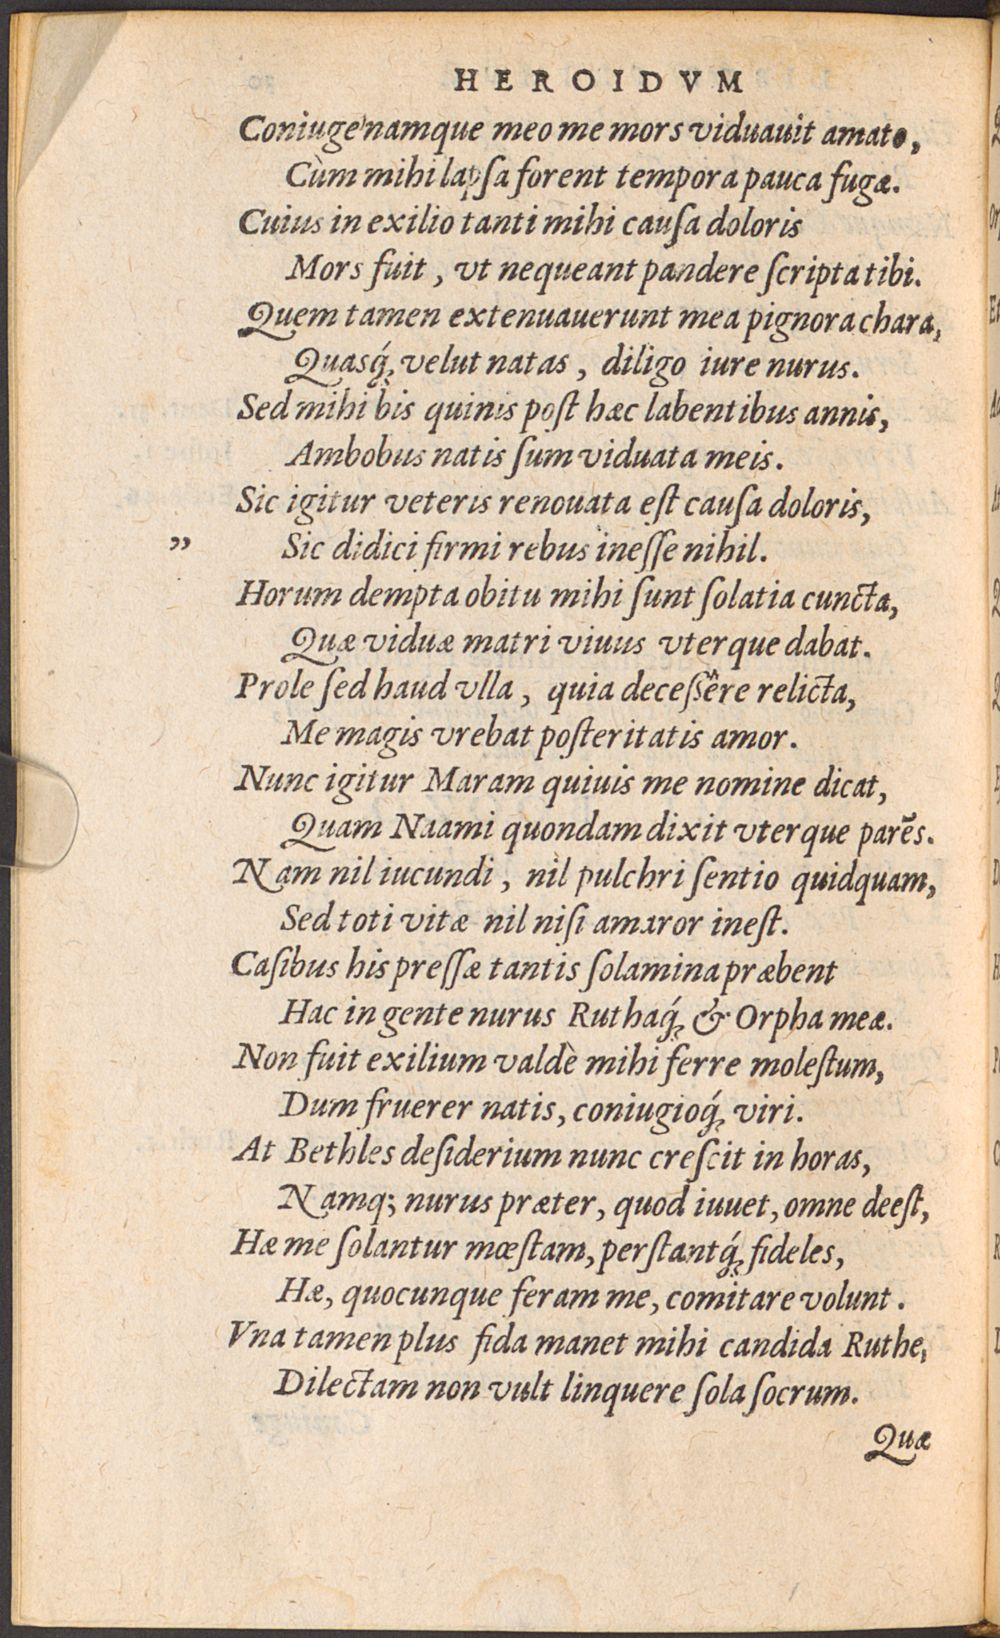 HEROIDVM
Coniuge namque meo me mors viduauit amato,
Cùm mihi lapſa forent tempora pauca fugæ.
Cuius in exilio tanti mihi cauſa doloris
Mors fuit, vt nequeant pandere ſcripta tibi.
Quem tamen extenuauerunt mea pignora chara,
Quasq́; velut natas, diligo iure nurus.
Sed mihi bis quinis poſt hæc labentibus annis,
Ambobus natis ſum viduata meis.
Sic igitur veteris renouata eſt cauſa doloris,
„ Sic didici firmi rebus ineſſe nihil.
Horum dempta obitu mihi ſunt ſolatia cuncta,
Quæ viduæ matri viuus vterque dabat.
Prole ſed haud vlla, quia deceſsêre relicta,
Me magis vrebat poſteritatis amor.
Nunc igitur Maram quiuis me nomine dicat,
Quam Naami quondam dixit vterque parēs.
Nam nil iucundi, nil pulchri ſentio quidquam,
Sed toti vitæ nil niſi amaror ineſt.
Caſibus his preſſæ tantis ſolamina præbent
Hac in gente nurus Ruthaq́; & Orpha meæ.
Non fuit exilium valdè mihi ferre moleſtum,
Dum fruerer natis, coniugioq́; viri.
At Bethles deſiderium nunc creſcit in horas,
Namq; nurus præter, quod iuuet, omne deeſt,
Hæ me ſolantur mœſtam, perſtantq́; fideles,
Hæ, quocunque feram me, comitare volunt.
Vna tamen plus fida manet mihi candida Ruthe,
Dilectam non vult linquere ſola ſocrum.
Quæ